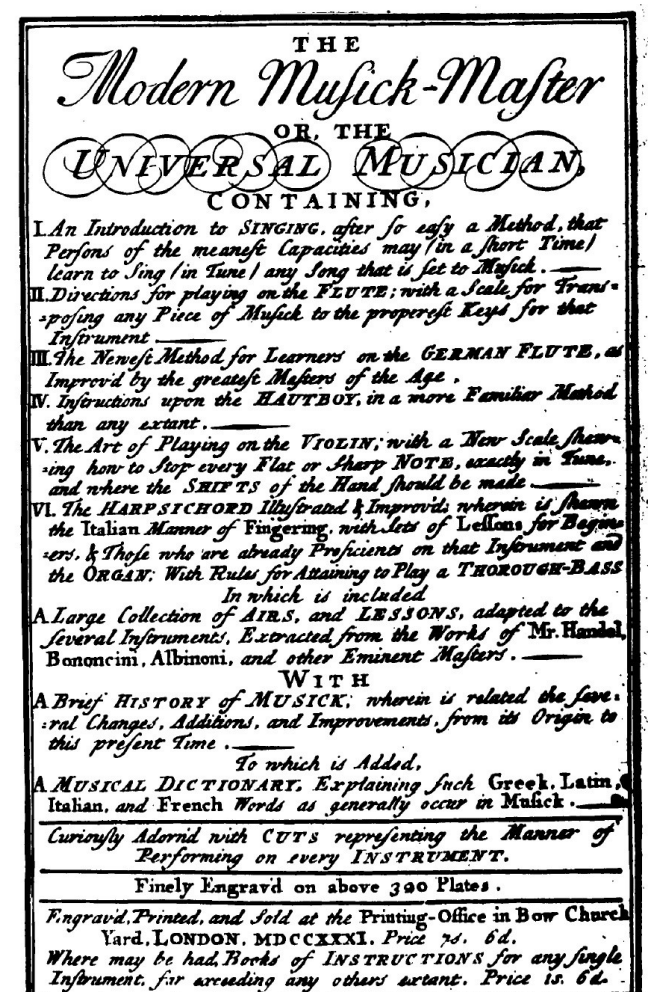 THE
Modern Muſick-Maſter
OR, THE
UNIVERSAL MUSICIAN,
CONTAINING,
I. An Introduction to SINGING, after ſo eaſy a Method, that
Perſons of the meaneſt Capacities may /in a ſhort Time/
learn to Sing /in Tune/ any Song that is ſet to Muſick.
II. Directions for playing on the FLUTE; with a Scale for Tranſ=
=poſing any Piece of Muſick to the propereſt Keys for that
Inſtrument
III. The Neweſt Method for Learners on the GERMAN FLUTE, as
Improv'd by the greateſt Maſters of the Age.
IV. Inſtructions upon the HAUTBOY, in a more Familiar Method
than any extant.
V. The Art of Playing on the VIOLIN; with a New Scale ſhew=
=ing how to Stop every Flat or Sharp NOTE, exactly in Tune,
and where the SHIFTS of the Hand ſhould be made
VI. The HARPSICHORD Illuſtrated & Improv'd; wherein is ſhewn
the Italian Manner of Fingering, with Sets of Leſſons for Begin=
=ers, & Thoſe who are already Proficients on that Inſtrument and
the ORGAN; With Rules for Attaining to Play a THOROUGH-BASS
In which is included
A Large Collection of AIRS, and LESSONS, adapted to the
ſeveral Inſtruments, Extracted from the Works of Mr. Handel,
Bononcini, Albinoni, and other Eminent Maſters.
WITH
A Brief HISTORY of MUSICK; wherein is related the ſeve=
=ral Changes, Additions, and Improvements, from its Origin to
this preſent Time.
To which is Added,
A MUSICAL DICTIONARY, Explaining ſuch Greek, Latin,
Italian, and French Words as generally occur in Muſick.
Curiouſly Adorn'd with CUTS repreſenting the Manner of
Performing on every INSTRUMENT.
Finely Engrav'd on above 320 Plates.
Engrav'd, Printed, and Sold at the Printing-Office in Bow Church
Yard, LONDON. MDCCXXXI. Price 7s. 6d.
Where may be had, Books of INSTRUCTIONS for any ſingle
Inſtrument, far exceeding any others extant. Price 1s. 6d.